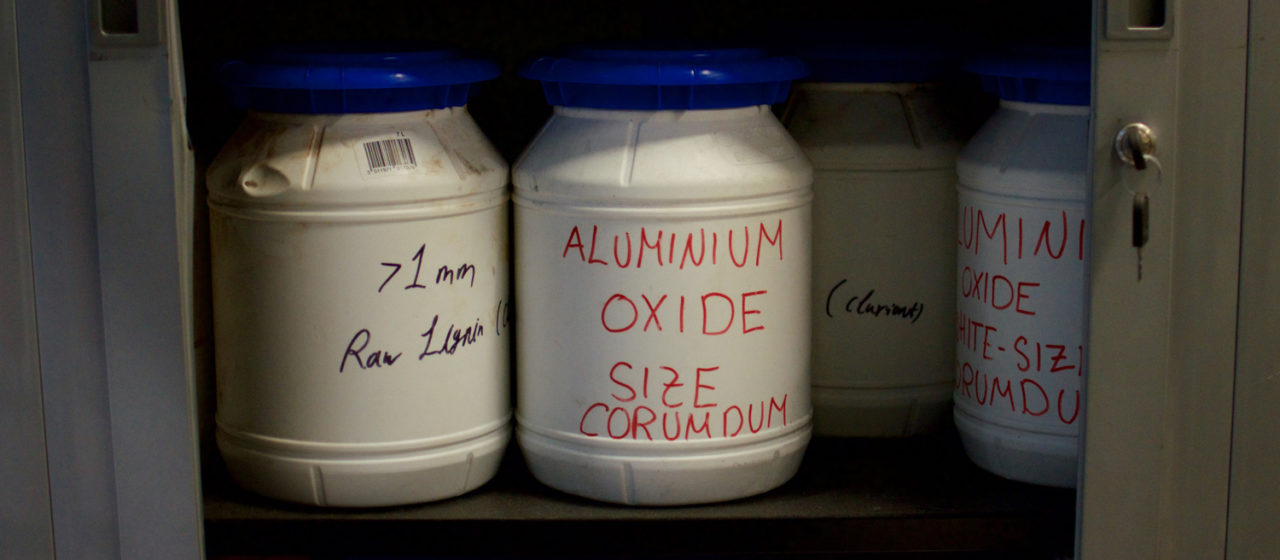 7L
>1mm
Raw Lignin (C
ALUMINIUM
OXIDE
SIZE
CORUMDUM
(Clariant)
LUMINI
OXIDE
HITE-SIZ
ORUMDU